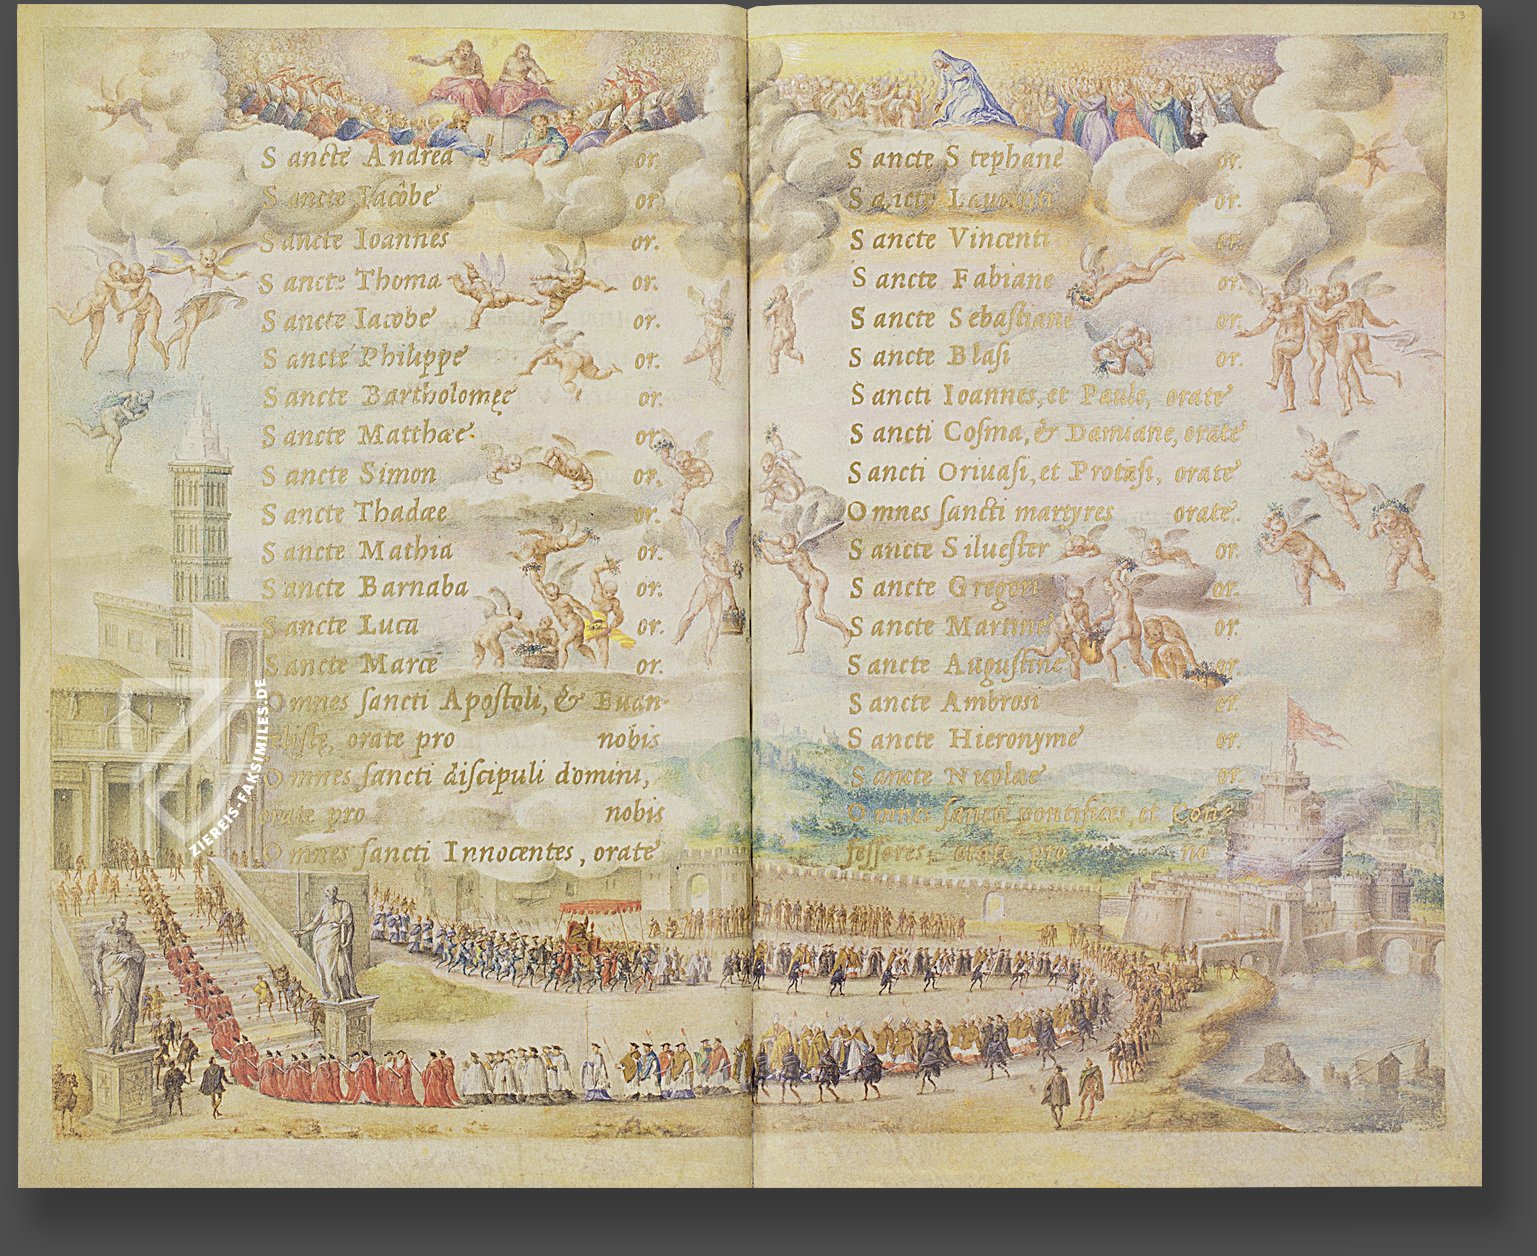 Sancte Andrea or.
Sancte Iacobe or.
Sancte Ioannes or.
Sancte Thoma or.
Sancte Iacobe or.
Sancte Philippe or.
Sancte Bartholomęe or.
Sancte Matthæe. or.
Sancte Simon or.
Sancte Thadæe or.
Sancte Mathia or.
Sancte Barnaba or.
Sancte Luca or.
Sancte Marce or.
Omnes ſancti Apoſtoli, & Euan-
geliſtę, orate pro nobis
Omnes ſancti diſcipuli domini,
orate pro nobis
Omnes ſancti Innocentes, orate
13
Sancte Stephane or.
Sancte Laurenti or.
Sancte Vincenti or.
Sancte Fabiane or.
Sancte Sebaſtiane or.
Sancte Blaſi or.
Sancti Ioannes, et Paule, orate
Sancti Coſma, & Damiane, orate
Sancti Oriuaſi, et Protaſi, orate
Omnes ſancti martyres orate.
Sancte Silueſter or.
Sancte Gregori or.
Sancte Martine or.
Sancte Auguſtine or.
Sancte Ambrosi or.
Sancte Hieronyme or.
Sancte Nicolae or.
Omnes ſancti pontifices, et Con-
feſſores, orate pro no
ZIEREIS-FAKSIMILES.DE